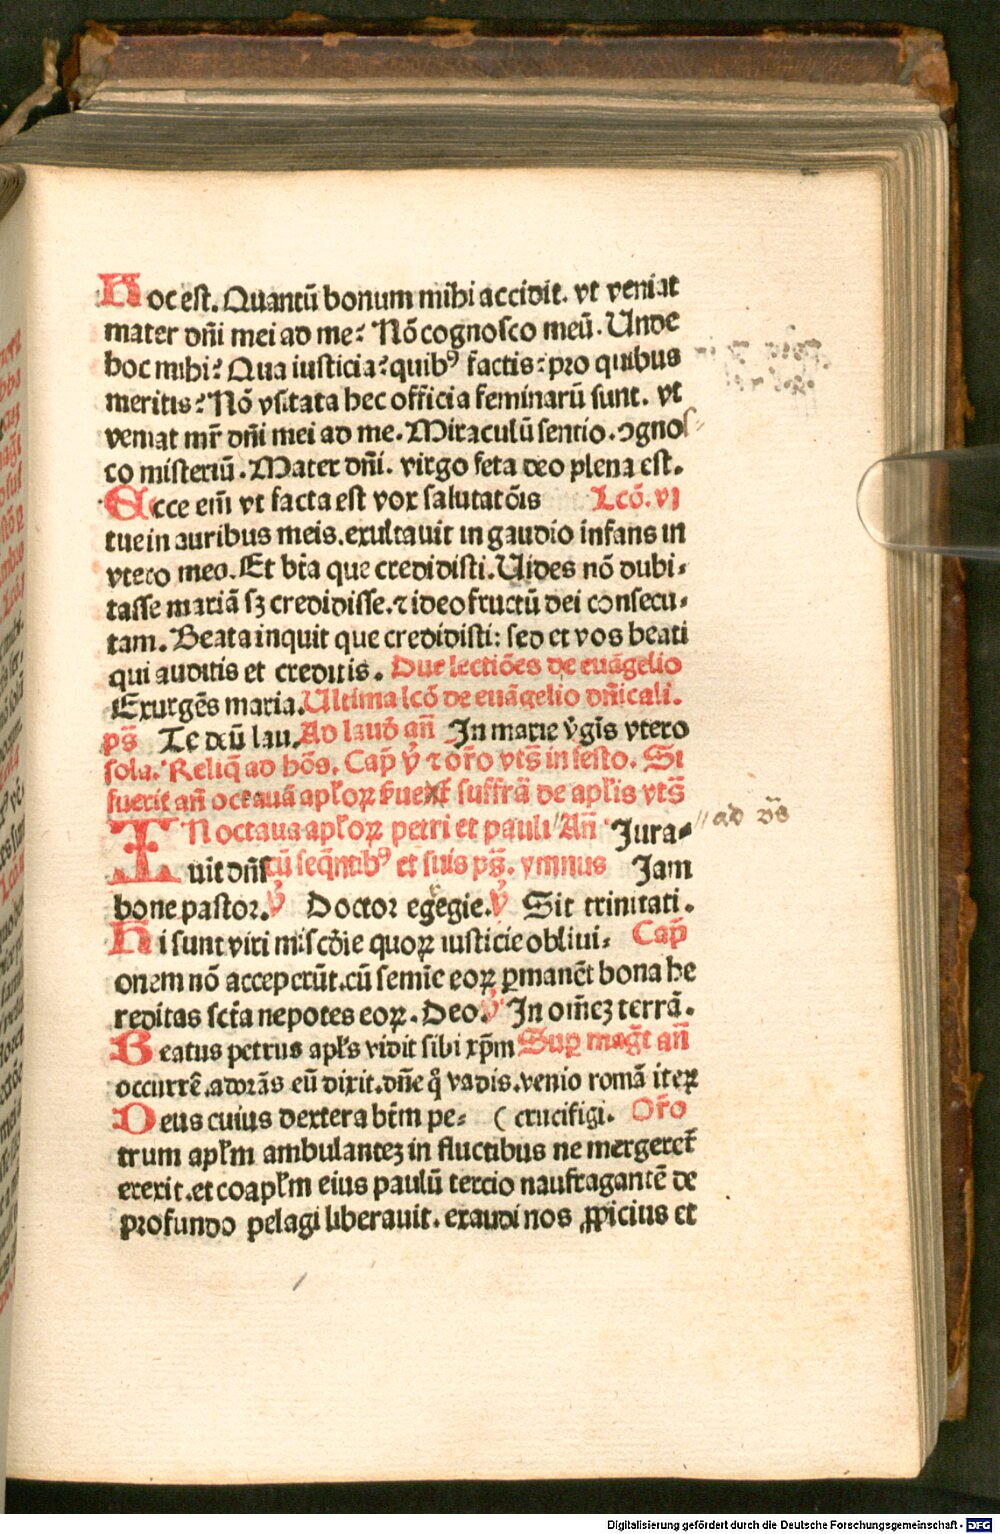 Hoc est. Quantū bonum mihi accidit. vt veniat
mater dn̄i mei ad me? Nō cognosco meū. Unde
hoc mihi? Qua iusticia? quibꝰ factis? pro quibus
meritis? Nō vsitata hec officia feminarū sunt. vt
veniat mr̄ dn̄i mei ad me. Miraculū sentio. ꝯgnos
co misteriū. Mater dn̄i. virgo feta deo plena est.
Ecce em̄ vt facta est vox salutatōis Lcō. vi
tue in auribus meis. exultauit in gaudio infans in
vtero meo. Et bt̄a que credidisti. Uides nō dubi⸗
tasse mariā sꝫ credidisse. ⁊ ideo fructū dei consecu⸗
tam. Beata inquit que credidisti: sed et vos beati
qui auditis et creditis. Due lectiōes de euāgelio
Exurgēs maria. Ultima lcō de euāgelio dn̄icali.
ps̄ Te deū lau. Ad laud̄ an̄ In marie v̄gīs vtero
sola. Reliq̄ ad hōs. Cap̄ v̄ ⁊ or̄o vts̄ in festo. Si
fuerit an̄ octauā apl̓oꝝ suffrā de apl̓is vts̄
IN octaua apl̓oꝝ petri et pauli An̄ Iura⸗ ad v̄s
uit dn̄s cū seq̄ntibꝰ et suis ps̄. ymnus Jam
bone pastor. v̄ Doctor egregie. v̄ Sit trinitati.
Hi sunt viri mis̄cd̄ie quoꝝ iusticie obliui⸗ Cap̄
onem nō acceperūt. cū semīe eoꝝ ꝑmanēt bona he
reditas sct̄a nepotes eoꝝ. Deo. v̄ In om̄eꝫ terrā.
Beatus petrus apl̓s vidit sibi xp̄m Suꝑ maḡt an̄
occurrē. adorās eū dixit. dn̄e q̊ vadis. venio romā iteꝝ
Deus cuius dextera bt̄m pe⸗ ( crucifigi. Or̄o
trum apl̓m ambulanteꝫ in fluctibus ne mergeret̄
erexit. et coapl̓m eius paulū tercio naufragantē de
profundo pelagi liberauit. exaudi nos ꝓpicius et
Digitalisierung gefördert durch die Deutsche Forschungsgemeinschaft - DFG